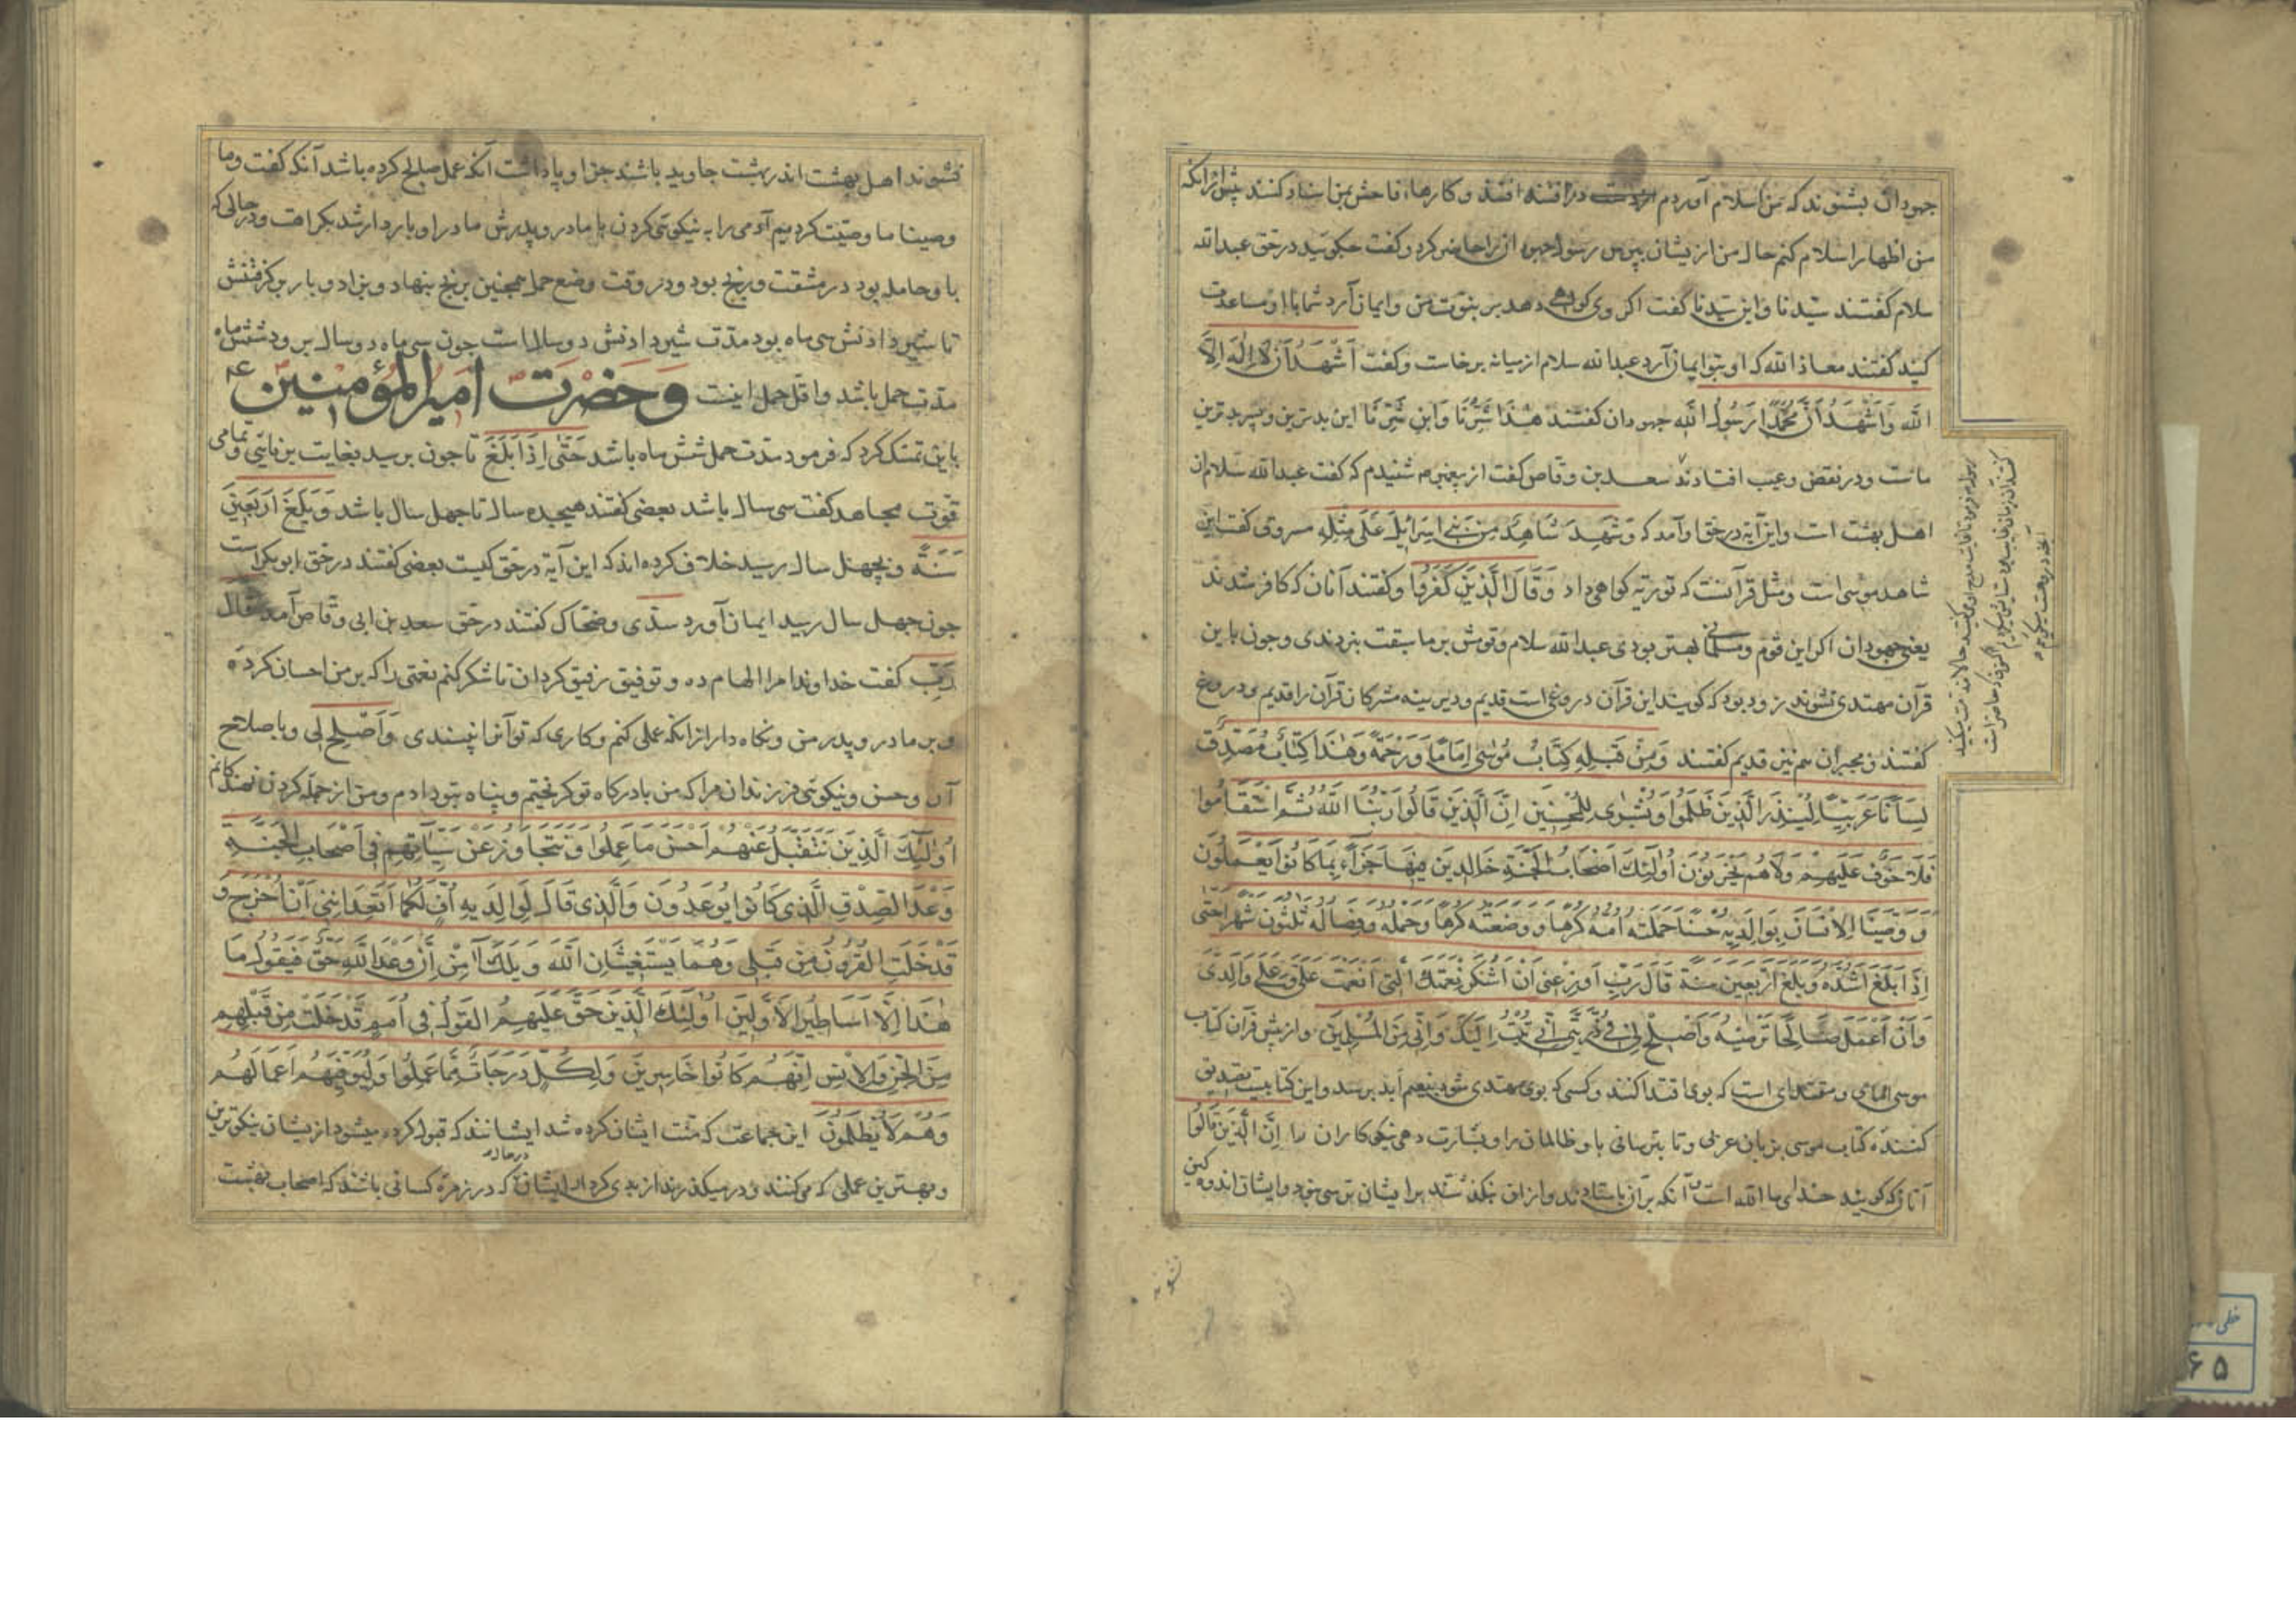 جهودان بشنوند که من اسلام آوردم در افسه افتند و کارهاء فاحش بمن اسناد کنند پیش از انکه
من اظهار اسلام کنم حال من ازیشان بپرس رسول جهودان را حاضر کرد و کفت چکوئید در حق عبدالله
سلام کفتند سیدنا و ابن سیدنا کفت اکر وی کواهی دهد بر نبوت من و ایمان آرد شما با او مساعدت
کنید کفتند معاذ الله که او بتو ایمان آرد عبدالله سلام از میانه برخاست و کفت اَشْهَدُ اَنْ لَا اِلٰهَ اِلَّا
الله وَاَشْهَدُ اَنَّ مُحَمَّدًا رَسُولُ اللهِ جهودان کفتند هٰذَا شَرُّنَا وَابْنِ شَرِّنَا این بدترین و پسر بدترین
ماست و در نقض و عیب افتادند سعد بن وقاص کفت از پیغمبر م شنیدم که کفت عبدالله سلام از
اهل بهشت است و این آیه در حق او آمد که وَشَهِدَ شَاهِدٌ مِنْ بَنِي اِسْرَائِيلَ عَلٰى مِثْلِهِ مسروق کفت این
شاهد موسی است و مثل قرآنست که توریه کواهی داد وَقَالَ الَّذِينَ كَفَرُوا و کفتند آنان که کافر شدند
یعنی جهودان اکر این قوم و مسلمانی بهتر بودی عبدالله سلام و قومش بر ما سبقت نبردندی و چون باین
قرآن مهتدی نشوند زود بود که کویند این قرآن دروغی است قدیم و دیرینه مشرکان قرآن را قدیم و دروغ
کفتند و مجبران هم نیز قدیم کفتند وَمِنْ قَبْلِهِ كِتَابُ مُوسٰى اِمَامًا وَرَحْمَةً وَهٰذَا كِتَابٌ مُصَدِّقٌ
لِسَانًا عَرَبِيًّا لِيُنْذِرَ الَّذِينَ ظَلَمُوا وَبُشْرٰى لِلْمُحْسِنِينَ اِنَّ الَّذِينَ قَالُوا رَبُّنَا اللهُ ثُمَّ اسْتَقَامُوا
فَلَا خَوْفٌ عَلَيْهِمْ وَلَا هُمْ يَحْزَنُونَ اُولٰئِكَ اَصْحَابُ الْجَنَّةِ خَالِدِينَ فِيهَا جَزَاءً بِمَا كَانُوا يَعْمَلُونَ
وَوَصَّيْنَا الْاِنْسَانَ بِوَالِدَيْهِ حُسْنًا حَمَلَتْهُ اُمُّهُ كُرْهًا وَوَضَعَتْهُ كُرْهًا وَحَمْلُهُ وَفِصَالُهُ ثَلٰثُونَ شَهْرًا حَتّٰى
اِذَا بَلَغَ اَشُدَّهُ وَبَلَغَ اَرْبَعِينَ سَنَةً قَالَ رَبِّ اَوْزِعْنِي اَنْ اَشْكُرَ نِعْمَتَكَ الَّتِي اَنْعَمْتَ عَلَيَّ وَعَلٰى وَالِدَيَّ
وَاَنْ اَعْمَلَ صَالِحًا تَرْضٰيهُ وَاَصْلِحْ لِي فِي ذُرِّيَّتِي اِنِّي تُبْتُ اِلَيْكَ وَاِنِّي مِنَ الْمُسْلِمِينَ و از پیش قرآن کتاب
موسی امامی و مقتدای است که بوی اقتدا کنند و کسی که بوی مهتدی شود بنعیم ابد برسد و این کتابیست تصدیق
کننده کتاب موسی بزبان عربی و تا بترسانی باو ظالمان را و بشارت دهی نیکوکاران را اِنَّ الَّذِينَ قَالُوا
آنان که کویند خدای ما الله است و آنکه بر آن باستادند و از ان بنکذشتند بر ایشان ترسی نبود و ایشان اندوهکین
نشوند
نشوند اهل بهشت اندر بهشت جاوید باشند جزا و پاداشت آنکه عمل صالح کرده باشد آنکه کفت وما
وصینا ما وصیّت کردیم آدمی را به نیکوئی کردن با مادر و پدرش مادر او باردار شد بکراهت و در حالی که
باو حامله بود در مشقت و رنج بود و در وقت وضع حمل همچنین برنج بنهاد و بزاد و بار برکرفتنش
تا شیر دادنش سی ماه بود مدت شیر دادنش دو سال است چون سی ماه دو سال برود شش ماه
مدت حمل باشد و اقل حمل اینست وَحَضْرَتِ اَمِيرُالْمُؤْمِنِينَ ع
باین تمسک کرد که فرمود مدت حمل شش ماه باشد حَتّٰى اِذَا بَلَغَ تا چون برسید بغایت برنائی و تمامی
قوت مجاهد کفت سی سال باشد بعضی کفتند هیجده سال تا چهل سال باشد وَبَلَغَ اَرْبَعِينَ
سَنَةً و بچهل سال رسید خلاف کرده اند که این آیه در حق کیست بعضی کفتند در حق ابوبکر است
چون چهل سال رسید ایمان آورد سدّی و ضحّاک کفتند در حق سعد بن ابی وقاص آمد قال
رَبِّ کفت خداوندا مرا الهام ده و توفیق رفیق کردان تا شکر کنم نعمتی را که بر من احسان کرده
و بر مادر و پدر من و نکاه دار از انکه عملی کنم و کاری که تو آنرا نپسندی وَاَصْلِحْ لِي و با صلاح
آر و حسن و نیکوئی فرزندان مرا که من با درکاه تو کریختم و پناه بتو دادم و من از جمله کردن نهندکانم
اُولٰئِكَ الَّذِينَ نَتَقَبَّلُ عَنْهُمْ اَحْسَنَ مَا عَمِلُوا وَنَتَجَاوَزُ عَنْ سَيِّئَاتِهِمْ فِي اَصْحَابِ الْجَنَّةِ
وَعْدَ الصِّدْقِ الَّذِي كَانُوا يُوعَدُونَ وَالَّذِي قَالَ لِوَالِدَيْهِ اُفٍّ لَكُمَا اَتَعِدَانِنِي اَنْ اُخْرَجَ وَ
قَدْ خَلَتِ الْقُرُونُ مِنْ قَبْلِي وَهُمَا يَسْتَغِيثَانِ اللهَ وَيْلَكَ اٰمِنْ اِنَّ وَعْدَ اللهِ حَقٌّ فَيَقُولُ مَا
هٰذَا اِلَّا اَسَاطِيرُ الْاَوَّلِينَ اُولٰئِكَ الَّذِينَ حَقَّ عَلَيْهِمُ الْقَوْلُ فِي اُمَمٍ قَدْ خَلَتْ مِنْ قَبْلِهِمْ
مِنَ الْجِنِّ وَالْاِنْسِ اِنَّهُمْ كَانُوا خَاسِرِينَ وَلِكُلٍّ دَرَجَاتٌ مِمَّا عَمِلُوا وَلِيُوَفِّيَهُمْ اَعْمَالَهُمْ
وَهُمْ لَا يُظْلَمُونَ این جماعت که منت ایشان کرده شد ایشانند که قبول کرده میشود ازیشان نیکوترین
و بهترین عملی که می‌کنند و در میکذرند از بدی کردار ایشان که در زمره کسانی باشد که اصحاب بهشت
خطی
۶۵